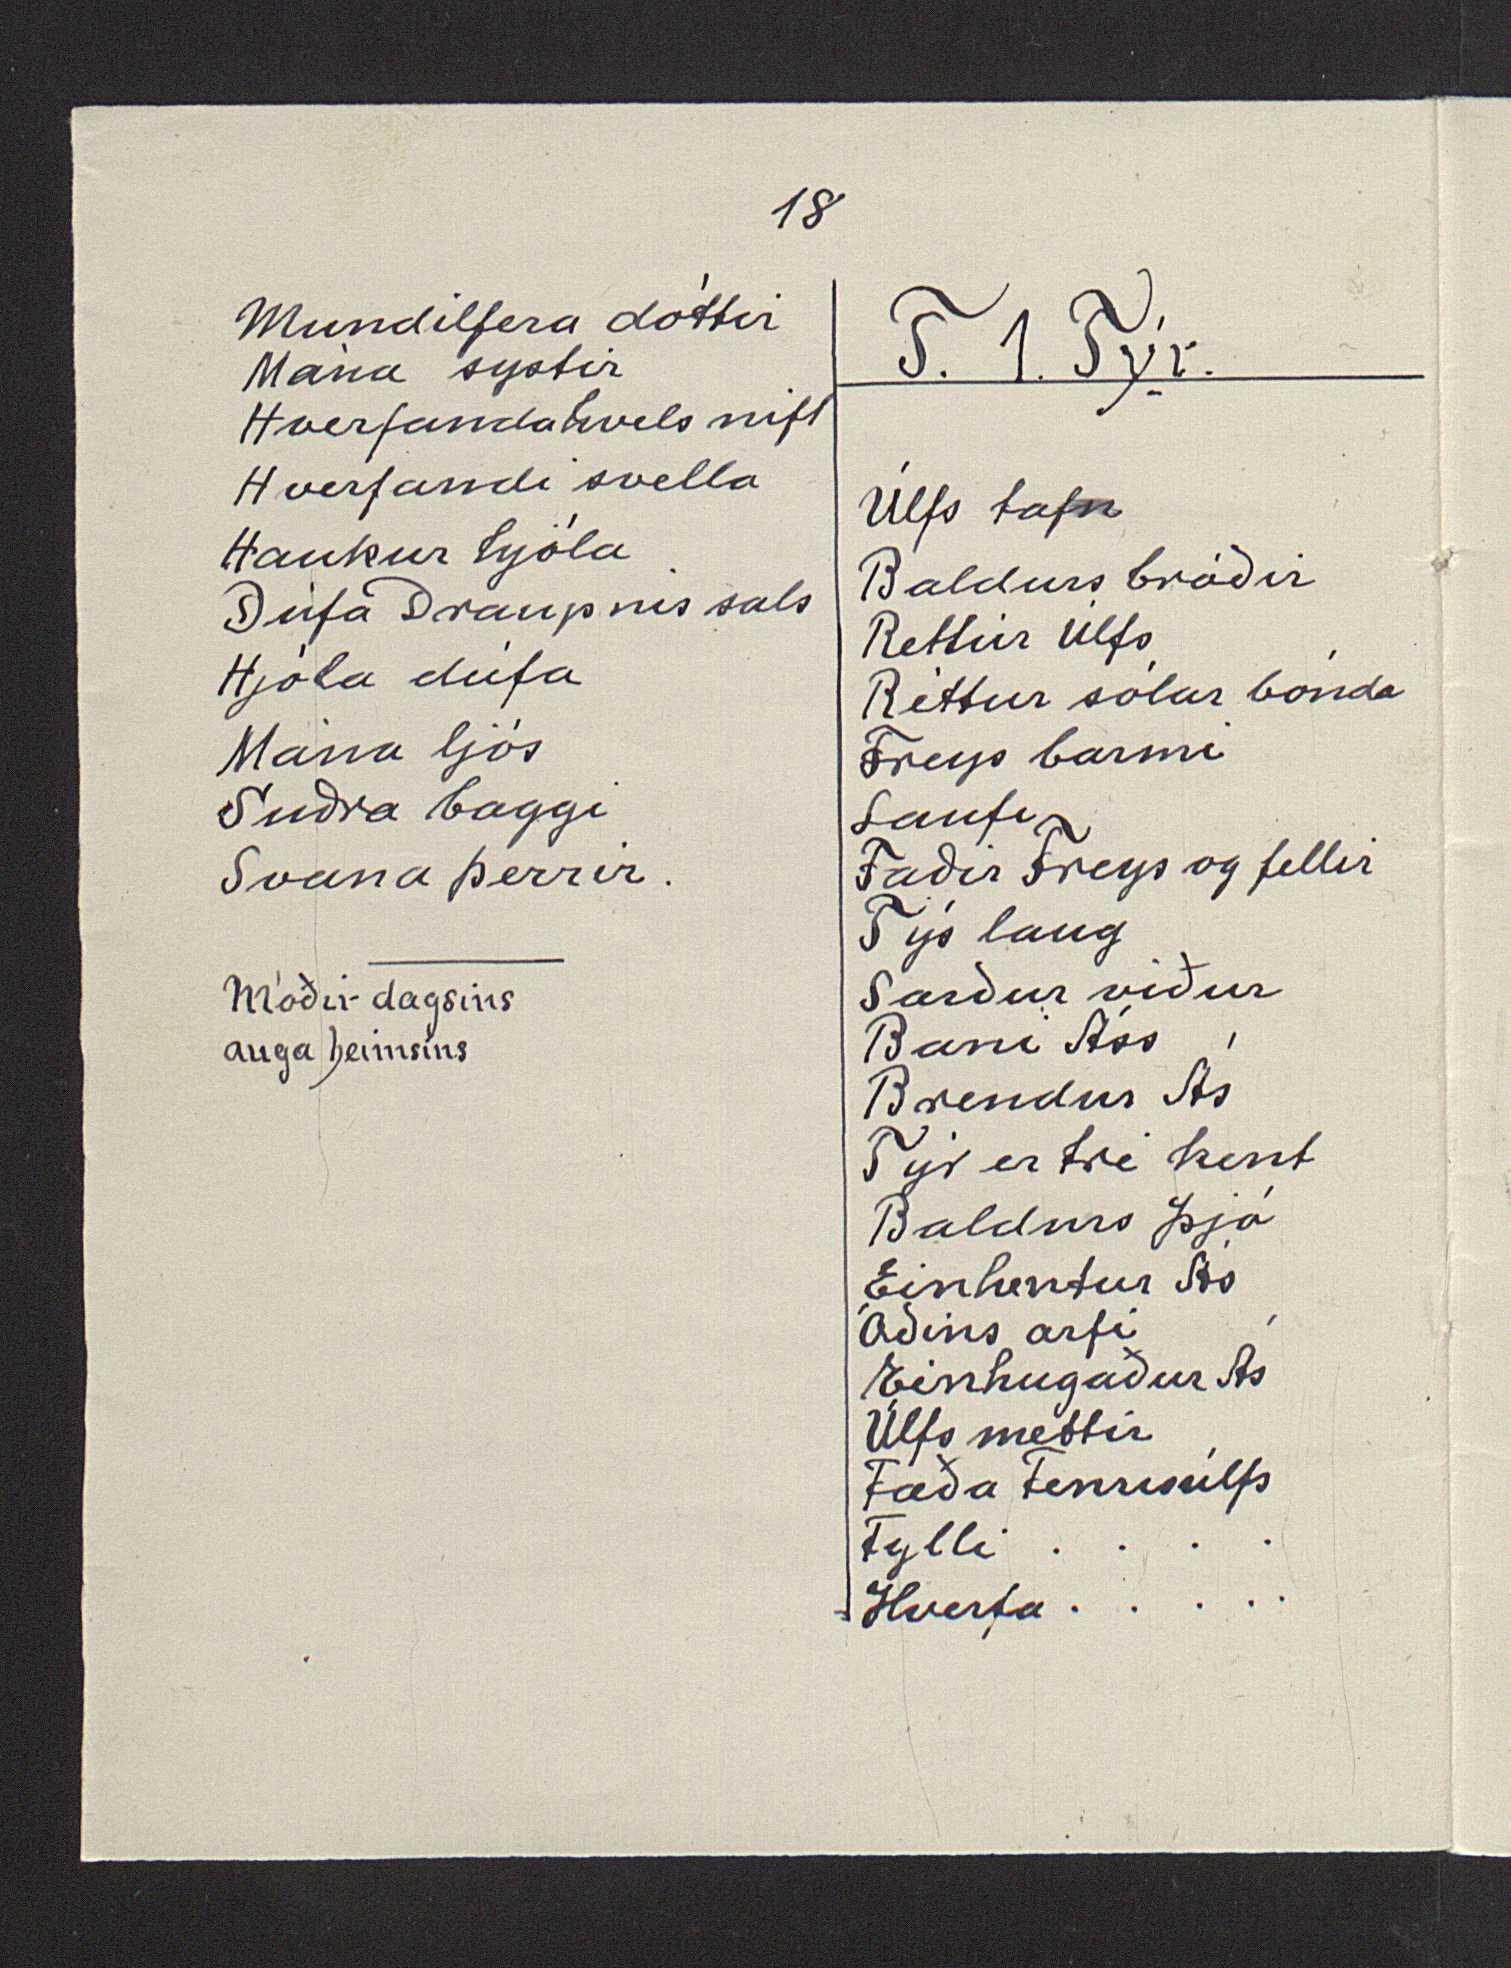 18
Mundilfera dóttir
Mána systir
Hverfandahvels nift
Hverfandi svella
Haukur hjóla
Dúfa Draupnis sals
Hjóla dúfa
Mána ljós
Suðra baggi
Svana þerrir.
Móðir dagsins
auga heimsins
T. 1. Týr.
Úlfs tafn
Baldurs bróðir
Rettur Úlfs
Réttur sólar bónda
Freys barmi
Laufi
Faðir Freys og fellir
Týs laug
Sarður viður
Bani Áss
Brendur Ás
Týr er tré kent
Baldurs þjó
Einhentur Ás
Óðins arfi
Einhugaður Ás
Úlfs mettir
Fæða Fenrisúlfs
Fylli . . . .
Hverfa . . . . .